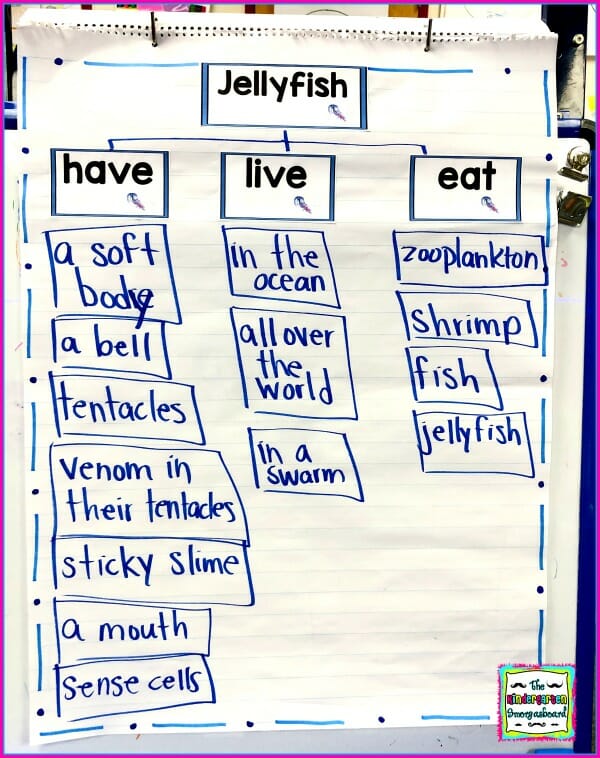 Jellyfish
have
a soft
body
a bell
tentacles
venom in
their tentacles
sticky slime
a mouth
sense cells
live
in the
ocean
all over
the
world
in a
swarm
eat
zooplankton
shrimp
fish
jellyfish
The
Kindergarten
Smorgasboard